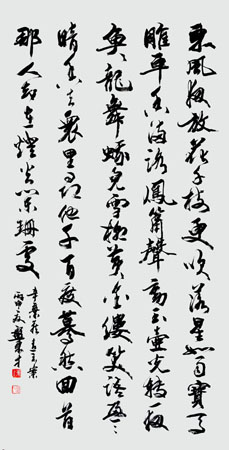 東風夜放花千樹更吹落星如雨寶馬
雕車香滿路鳳簫聲動玉壺光轉一夜
魚龍舞蛾兒雪柳黃金縷笑語盈盈
暗香去衆里尋他千百度驀然回首
那人却在燈火闌珊處
辛棄疾青玉案
丙申夏